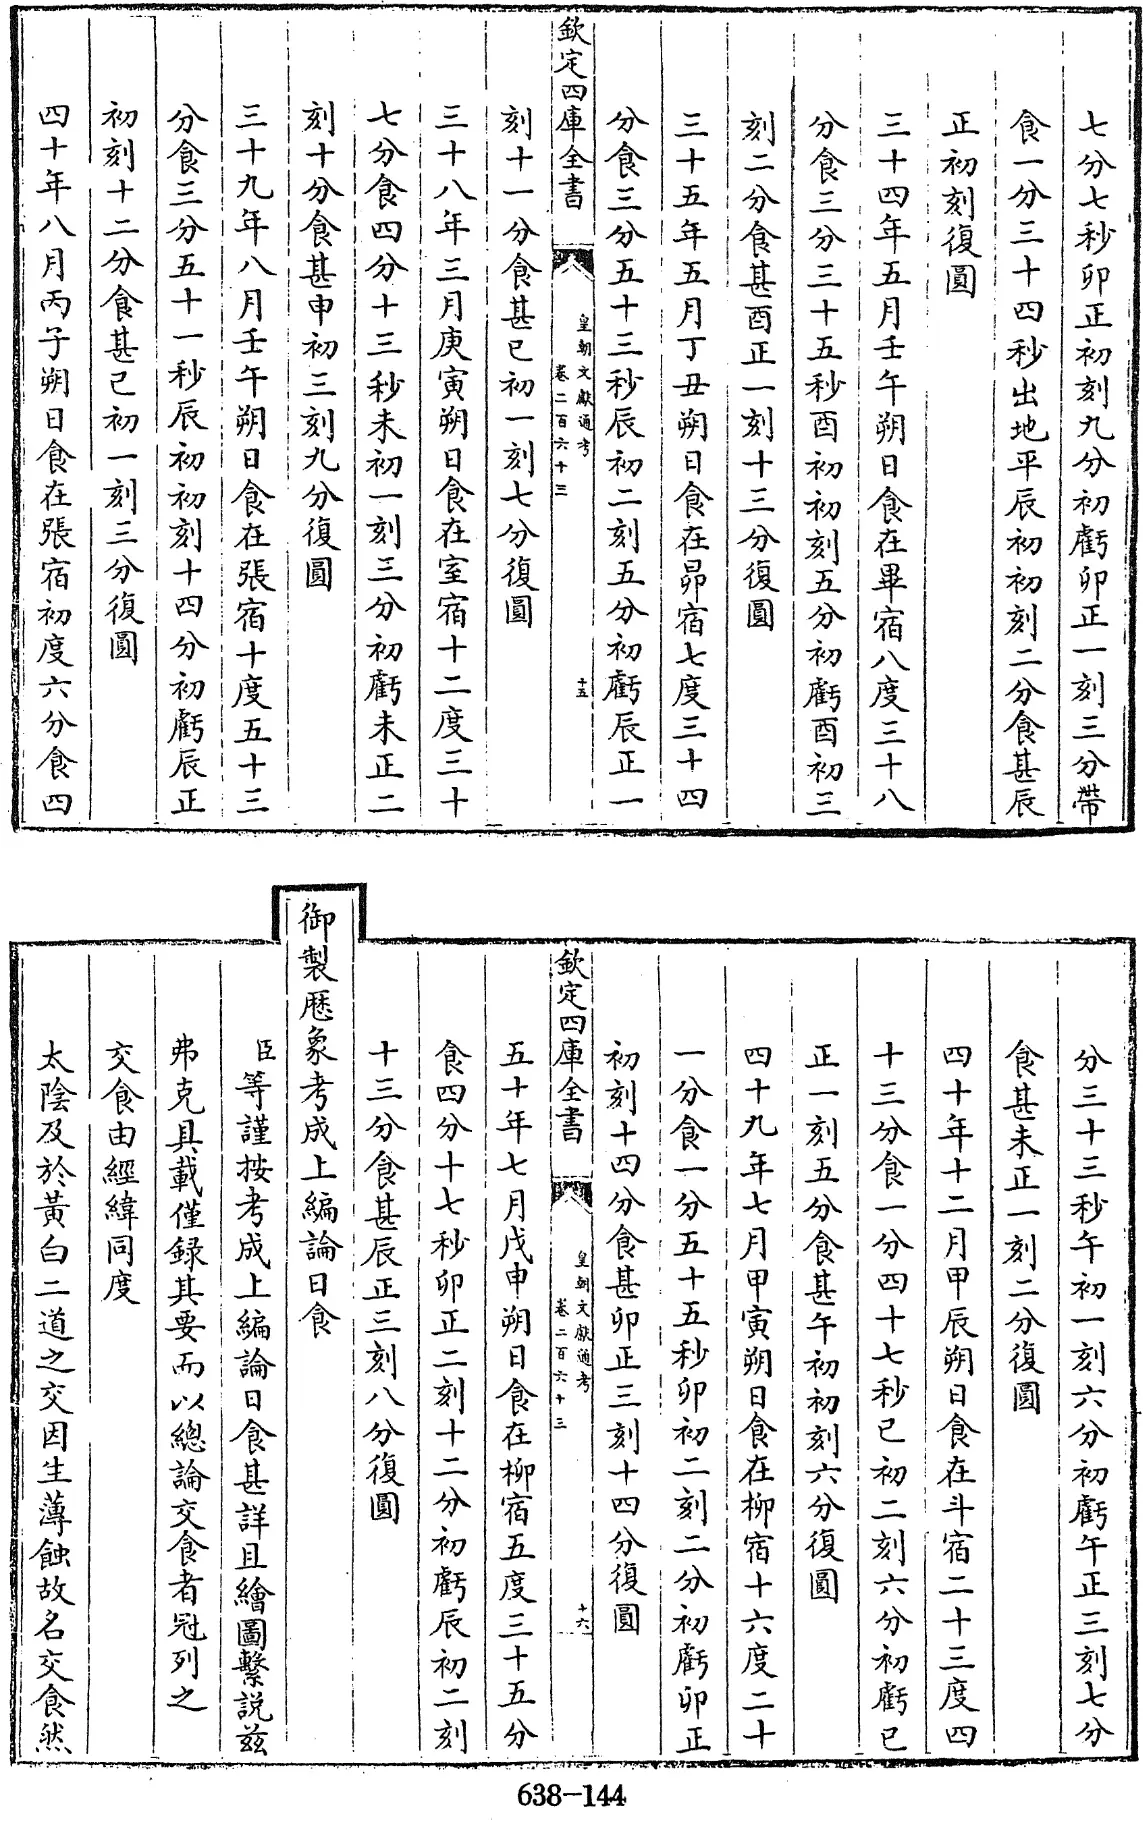 七分七秒卯正初刻九分初虧卯正一刻三分帶
食一分三十四秒出地平辰初初刻二分食甚辰
正初刻復圓
三十四年五月壬午朔日食在畢宿八度三十八
分食三分三十五秒酉初初刻五分初虧酉初三
刻二分食甚酉正一刻十三分復圓
三十五年五月丁丑朔日食在昴宿七度三十四
分食三分五十三秒辰初二刻五分初虧辰正一
欽定四庫全書
皇朝文獻通考
卷二百六十三
十五
刻十一分食甚巳初一刻七分復圓
三十八年三月庚寅朔日食在室宿十二度三十
七分食四分十三秒未初一刻三分初虧未正二
刻十分食甚申初三刻九分復圓
三十九年八月壬午朔日食在張宿十度五十三
分食三分五十一秒辰初初刻十四分初虧辰正
初刻十二分食甚巳初一刻三分復圓
四十年八月丙子朔日食在張宿初度六分食四
分三十三秒午初一刻六分初虧午正三刻七分
食甚未正一刻二分復圓
四十年十二月甲辰朔日食在斗宿二十三度四
十三分食一分四十七秒巳初二刻六分初虧巳
正一刻五分食甚午初初刻六分復圓
四十九年七月甲寅朔日食在柳宿十六度二十
一分食一分五十五秒卯初二刻二分初虧卯正
初刻十四分食甚卯正三刻十四分復圓
欽定四庫全書
皇朝文獻通考
卷二百六十三
十六
五十年七月戊申朔日食在柳宿五度三十五分
食四分十七秒卯正二刻十二分初虧辰初二刻
十三分食甚辰正三刻八分復圓
御製厯象考成上編論日食
臣等謹按考成上編論日食甚詳且繪圖繫説兹
弗克具載僅録其要而以總論交食者冠列之
交食由經緯同度
太陰及於黃白二道之交因生薄蝕故名交食然
638-144